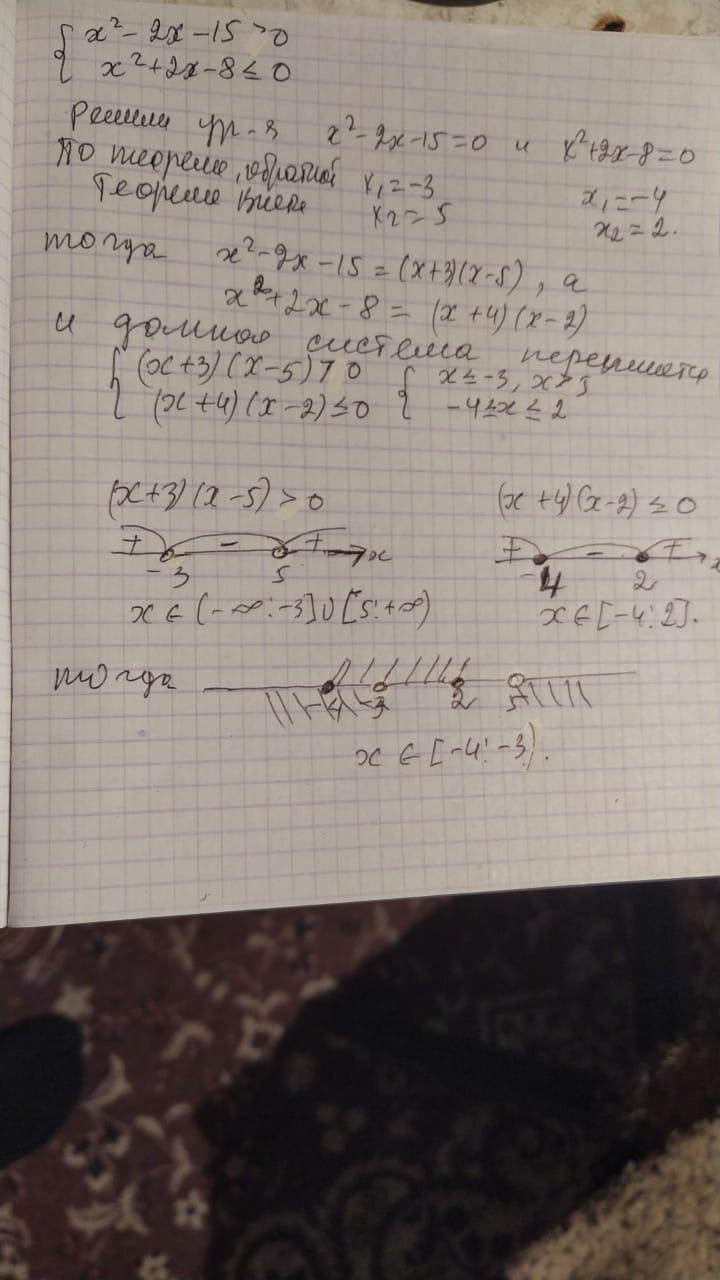 { x² - 2x - 15 > 0
{ x² + 2x - 8 ≤ 0
Решим ур-я x² - 2x - 15 = 0 и x² + 2x - 8 = 0
По теореме, обратной x₁ = -3 x₁ = -4
Теореме Виета x₂ = 5 x₂ = 2.
тогда x² - 2x - 15 = (x+3)(x-5), а
x² + 2x - 8 = (x+4)(x-2)
и данная система перепишется
{ (x+3)(x-5) > 0 { x ≤ -3, x > 5
{ (x+4)(x-2) ≤ 0 { -4 ≤ x ≤ 2
(x+3)(x-5) > 0 (x+4)(x-2) ≤ 0
+ - + x + - + x
-3 5 -4 2
x ∈ (-∞; -3] ∪ [5; +∞) x ∈ [-4; 2].
тогда -4 -3 2 5
x ∈ [-4; -3).